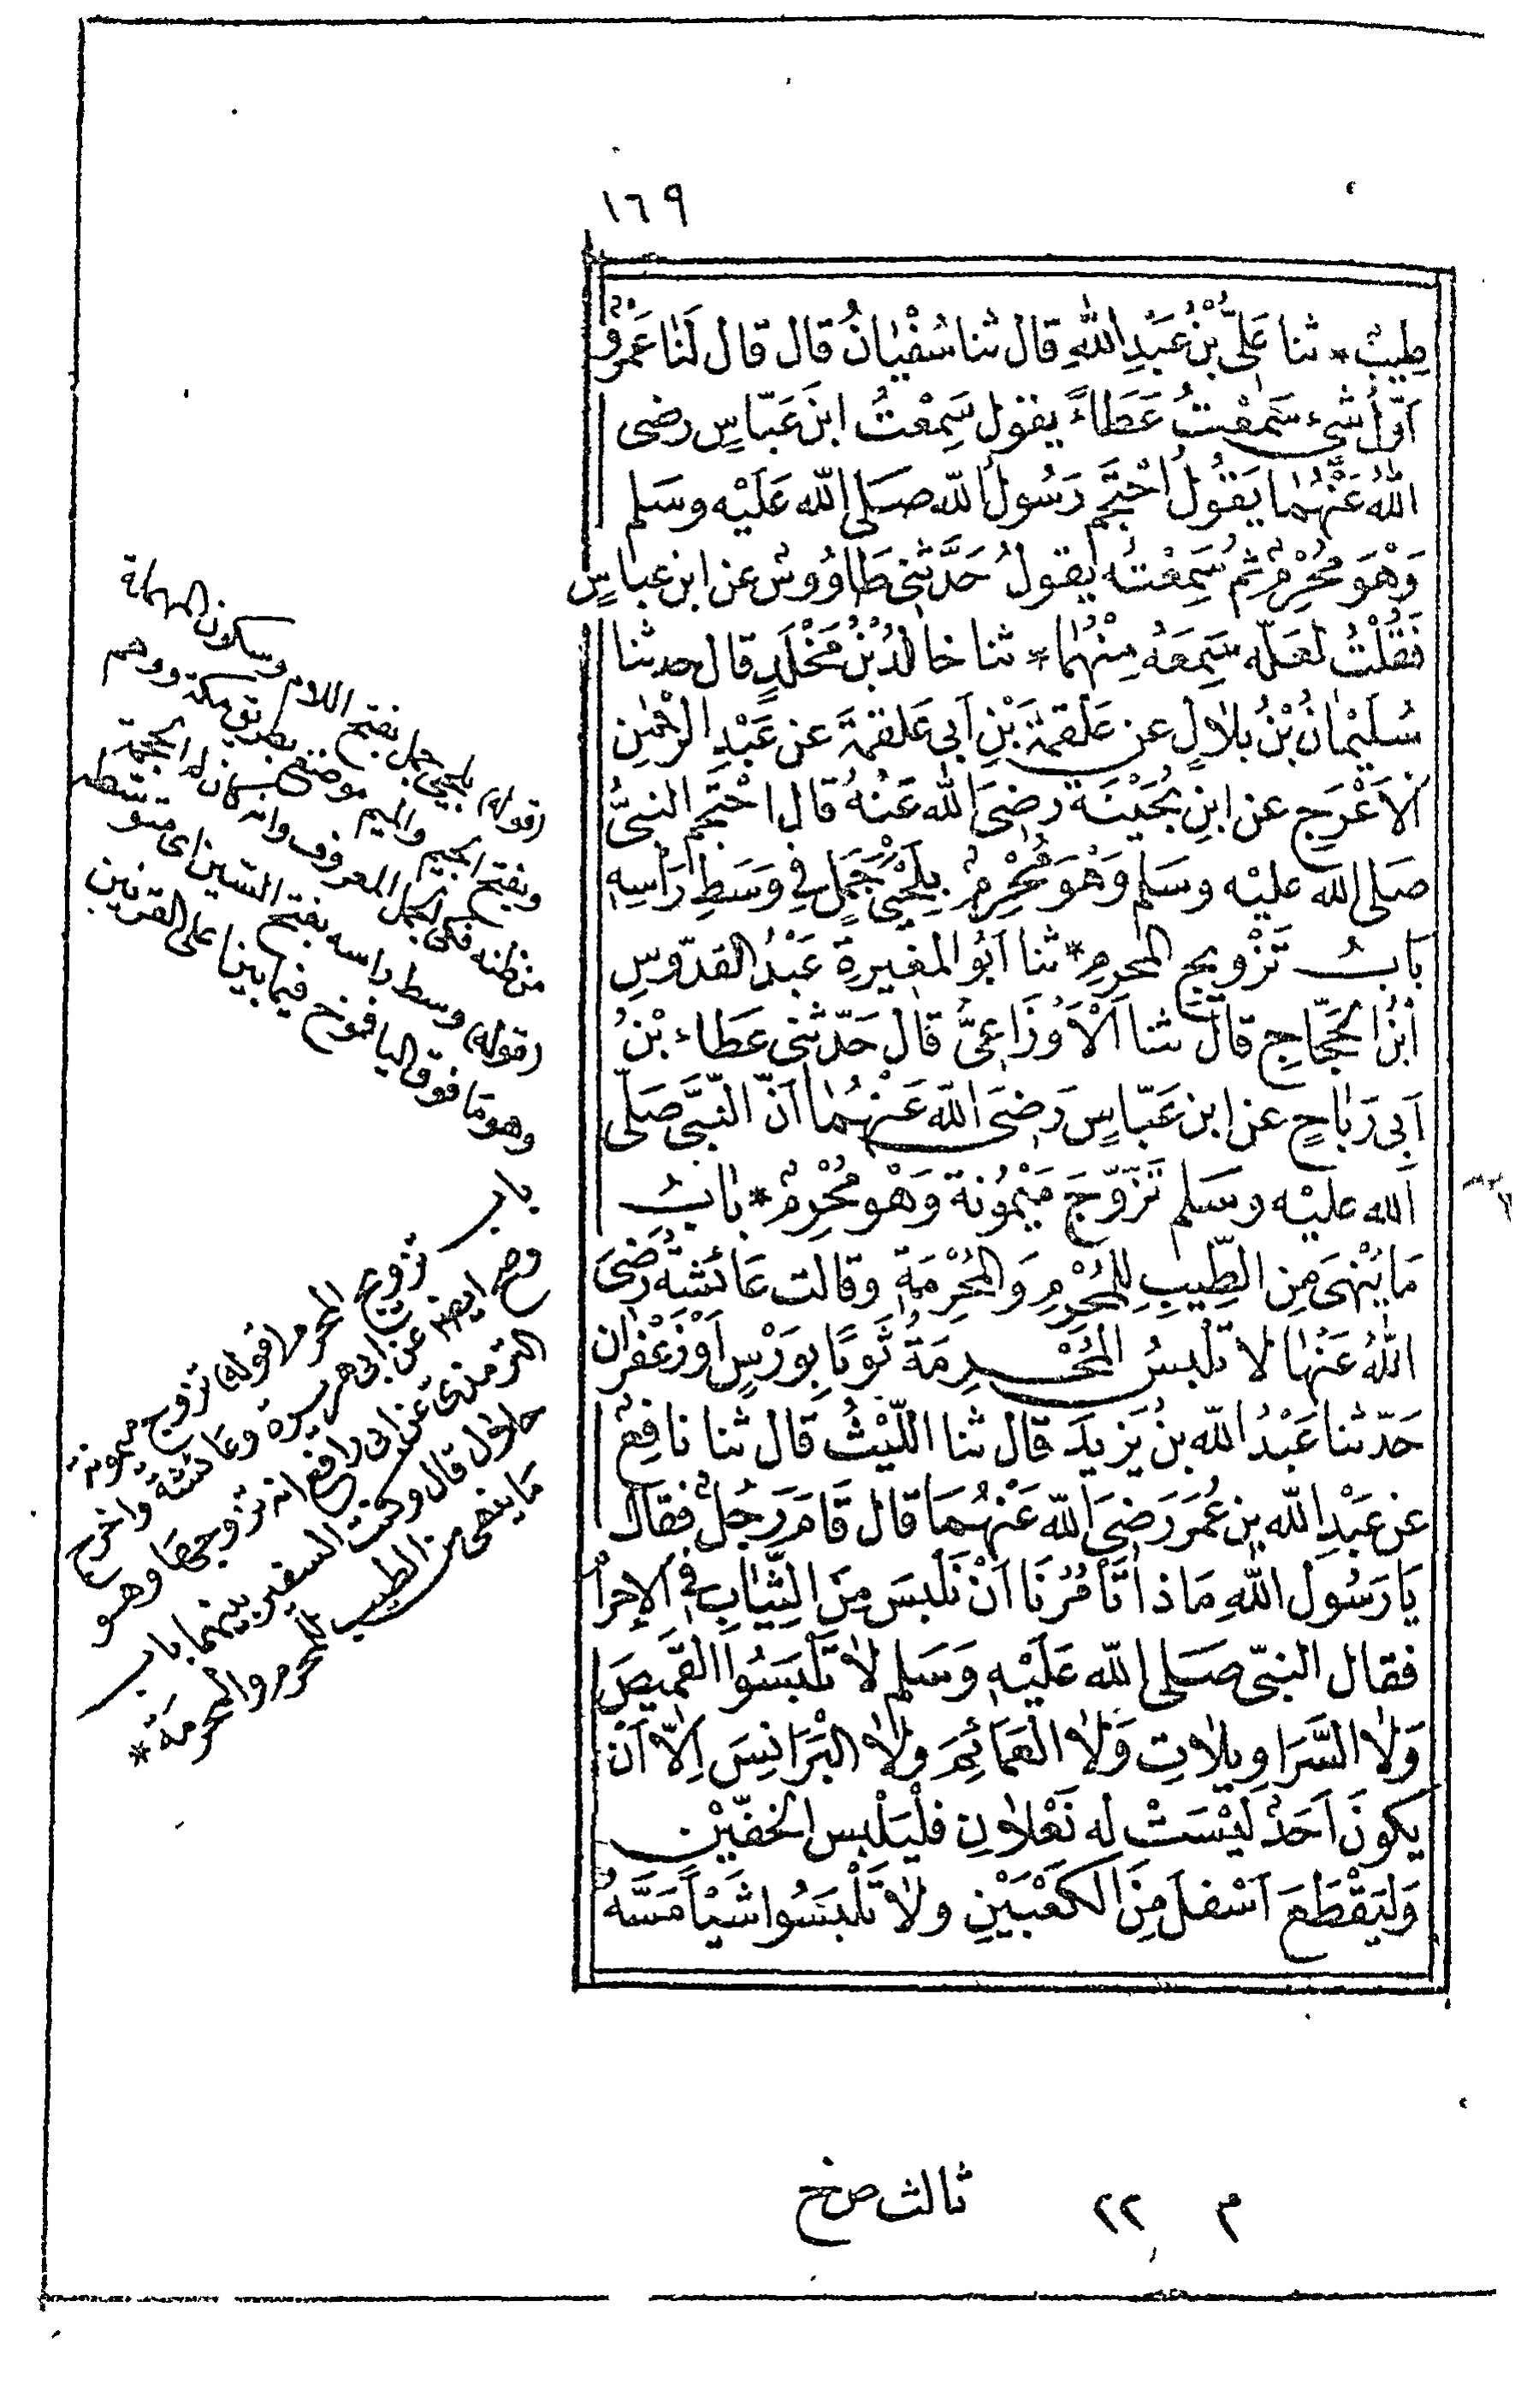 ١٦٩
طِيبٌ * ثنا عَلِيُّ بْنُ عَبْدِ اللهِ قال ثنا سُفْيَانُ قال قال لَنَا عَمْرٌو
اَوَّلُ شَيْءٍ سَمِعْتُ عَطَاءً يقول سَمِعْتُ ابنَ عَبّاسٍ رضى
اللهُ عَنْهُمَا يَقُولُ اُحْتَجَمَ رَسُولُ الله صَلى الله عَلَيْه وسَلم
وَهْوَ مُحْرِمٌ ثم سَمِعْتُه يقولُ حَدَّثنى طَاوُوسٌ عن ابن عباسٍ
فَقُلْتُ لعَلّه سَمِعَهُ مِنْهُمَا * ثنا خالدُ بْنُ مَخْلَدٍ قال حدثنا
سُلَيْمَانُ بْنُ بِلَالٍ عن عَلْقَمَةَ بْنِ اَبى عَلقمَةَ عن عَبْدِ الرَّحْمٰنِ
اْلاَعْرَجِ عن ابنِ بُحَيْنَةَ رضِىَ الله عَنْهُ قال احْتَجَم النبىُّ
صَلى الله عليْه وسَلم وَهْوَ مُحْرِمٌ بِلَحْيَيْ جَمَلٍ فِي وَسَطِ رَأْسِهِ
بابُ تَزْويجِ المحرمِ * ثنا اَبُو المغيرةِ عَبْدُ القدّوسِ
اْبْنُ الحَجّاجِ قال ثنا اْلاَوْزَاعِىُّ قال حَدّثنى عَطَاء بْنُ
اَبِى رَبَاحٍ عن ابن عَبّاسٍ رَضِىَ الله عَنهُمَا اَنّ النّبىَّ صَلّى
الله عليْه وسَلم تَزَوّجَ مَيْمُونَة وَهْو مُحْرِمٌ * بابُ
مَا يُنْهَى مِن الطِّيبِ لِلْمُحْرِمِ وَالمُحْرِمَةِ وقالت عَائشةُ رَضِىَ
اللهُ عَنْهَا لا تلْبسُ المُحْرِمَةُ ثَوبًا بِوَرْسٍ اَوْ زَعْفرانٍ
حَدّثنا عَبْدُ الله بنُ يَزيدَ قال ثنا اللّيْثُ قال ثنا نافِعٌ
عن عَبْدِ الله بنِ عُمَرَ رَضِىَ الله عَنْهُمَا قال قَامَ رَجُلٌ فقال
يَا رَسُولَ اللهِ مَاذا تَأْمُرُنَا اَنْ نَلْبَسَ مِنَ الثِّيَابِ فِى الإحرا
فقال النبىّ صَلى الله عَلَيْهِ وَسَلم لا تَلْبَسُوا القمِيصَ
وَلَا السَّرَاوِيلَاتِ وَلَا العَمَائِمَ ولَا البَرَانِسَ اِلَّا اَنْ
يكونَ اَحَدٌ ليْسَتْ له نَعْلانِ فلْيَلْبس الخفّيْن
وَليَقْطَع اَسْفلَ مِنَ الكَعْبَيْنِ ولا تَلْبَسُوا شَيْأً مَسَّهُ
(قوله) بلحيى جمل بفتح اللام وسكون المهملة
وبفتح الجيم والميم موضع بطريق مكة ووهم
من ظنه فكى الجمل المعروف وانه كان له الحجمة
(قوله) وسط راسه بفتح السين اى متوسطه
وهو مَا فوق اليافوخ فيما بين اعلى القرنين
باب تزويج المحرم (قوله) تزوج ميمونة
وصح ايضا عن ابى هريرة وعائشة واخرج
الترمذى عن ابى رافع انه تزوجها وهو
حلال قال وكنت السفير بينهما باب
مَا ينهى من الطيب للمحرم والمحرمَة *
م ٢٢ ثالث ص خ